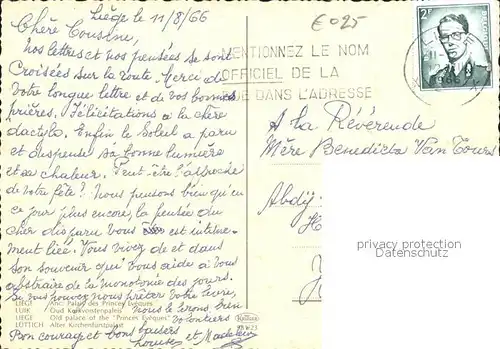 Liège le 11/8/66
Chère Cousine,
nos lettres et nos pensées se sont
Croisées sur la route. Merci de
votre longue lettre et de vos bonnes
prières. Félicitations à la chère
dactylo. Enfin le soleil a paru
et dispense sa bonne lumière
et sa chaleur. Peut-être l'approche
de votre fête? Nous pensons bien qu'en
ce jour plus encore, la pensée du
cher disparu vous est intime-
ment liée. Vous vivez de et dans
son souvenir qui vous aide à vous
abstraire de la monotonie des jours.
Si vous pouvez nous prêter votre livre,
nous le lirons bien
volontiers
Bon courage et bons baisers
Louise et Madeleine
LIEGE Anc. Palais des Princes Evêques
LUIK Oud Kurkvorstenpaleis
LIEGE Old palace of the "Princes Evêques"
LÜTTICH Alter Kirchenfürstpalast
€025
MENTIONNEZ LE NOM
OFFICIEL DE LA
DANS L'ADRESSE
2F
BELGIQUE
A la Révérende
Mère Benedicta Van
Abdij
privacy protection
Datenschutz